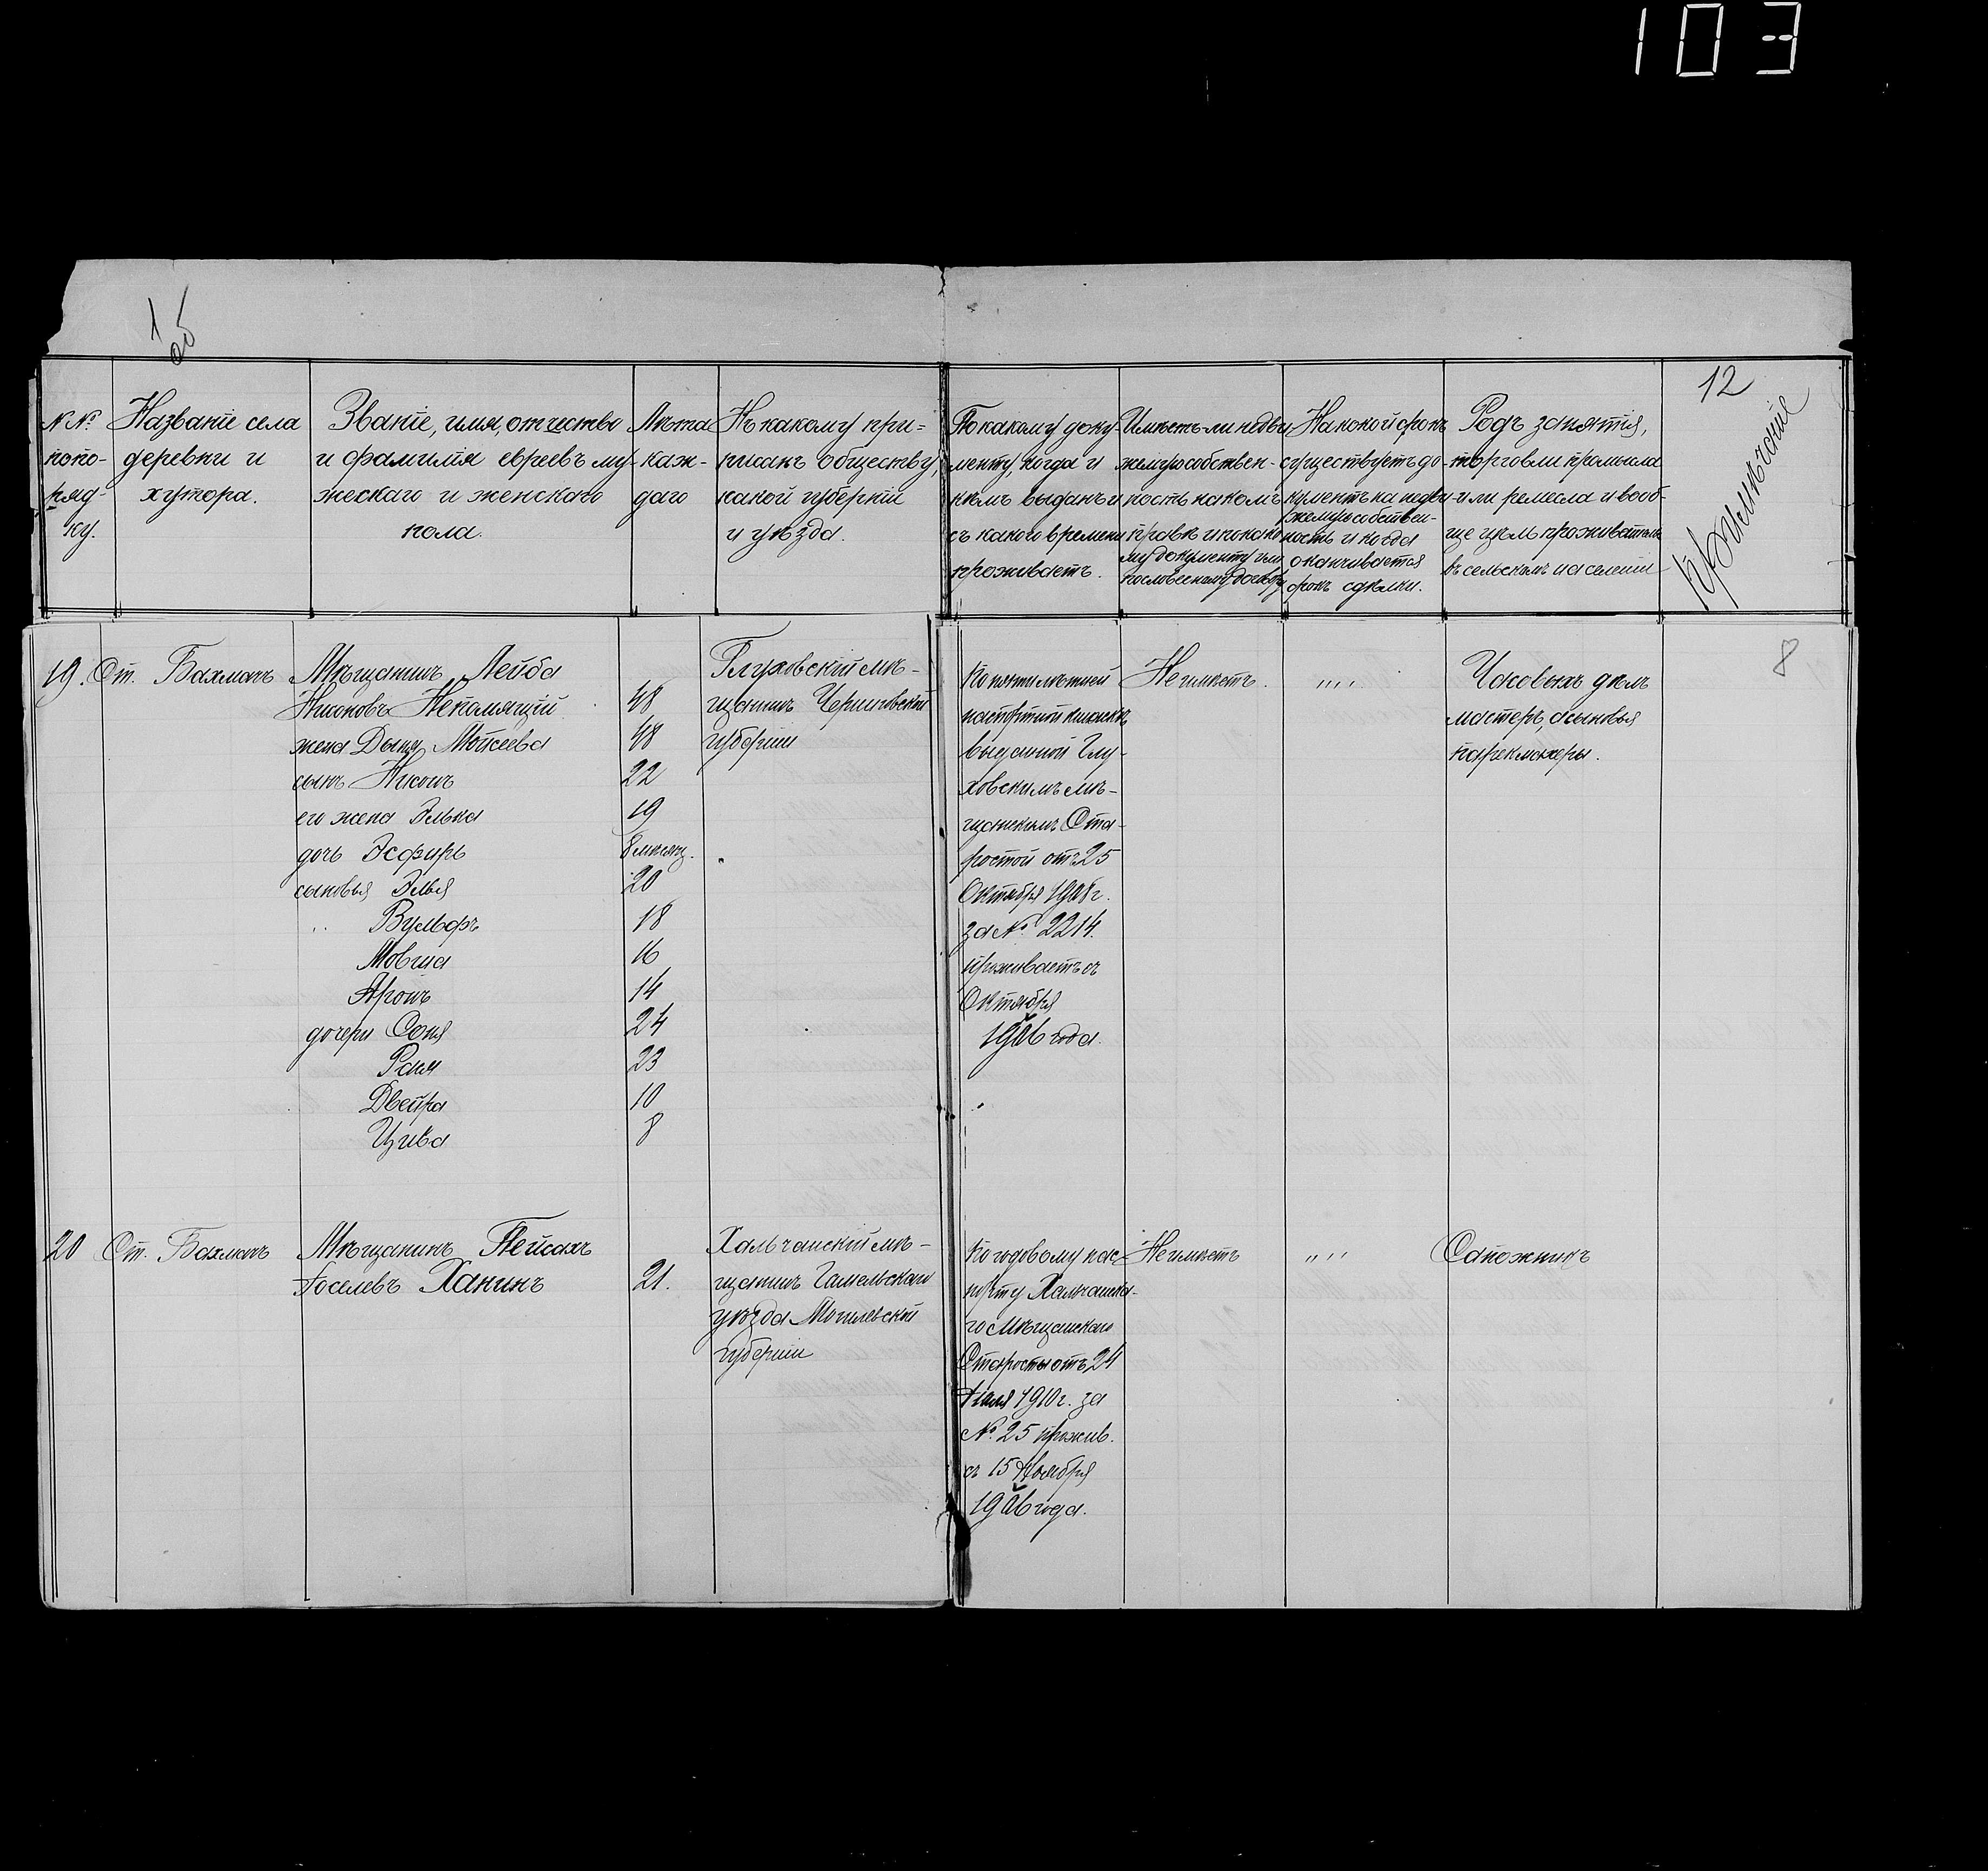 103
1
об
12
№№ попо-ряд-ку.
Названіе села
деревни и
хутора.
Званіе, имя, отчество
и фамилія евреевъ му-
жескаго и женскаго
пола.
Лѣта
каж-
даго
Къ какому при=
писанъ обществу,
какой губерніи
и уѣзда.
По какому доку-
менту, когда и
кѣмъ выданъ и
съ какого времени
проживаетъ.
Имѣетъ-ли недви-
жимую собствен-
ность на какомъ
правѣ и по како
му документу или
по словесному договору
На какой срокъ
существуетъ до-
кументъ на недви-
жимую собствен-
ность и когда
оканчивается
срокъ сдѣлки.
Родъ занятія,
торговли промысла
или ремесла и вооб-
ще чѣмъ проживаетъ
въ сельскомъ населеніи
Примѣчаніе
8
19. Ст. Бахмачъ
Мѣщанинъ Лейба
Непомящій 48
жена Моисеева 48
сынъ 22
его жена Элька 19
дочь Эсфирь 8 мѣсяц.
сыновья Элья 20
" Вульфъ 18
Мовша 16
Аронъ 14
дочери Соня 24
Рая 23
Двейра 10
Цива 8
Глуховскій мѣ-
щанинъ Черниговской
губерніи
По пятилѣтней
паспортной книжкѣ
выданной Глу-
ховскимъ мѣ-
щанскимъ Ста-
ростой отъ 25
Октября 1908 г.
за № 2214.
проживаетъ съ
Октября
1906 года.
Неимѣетъ.
" "
Часовыхъ дѣлъ
мастеръ, а сыновья
парекмахеры.
20 Ст. Бахмачъ
Мѣщанинъ Пейсахъ
Іоселевъ Ханинъ 21.
Хальчанскій мѣ-
щанинъ Гомельскаго
уѣзда Могилевской
губерніи
По годовому пас-
порту Хальчанска-
го Мѣщанскаго
Старосты отъ 24
1910 г. за
№ 25 прожив.
съ 15 Ноября
1906 года.
Неимѣетъ
" "
Сапожникъ